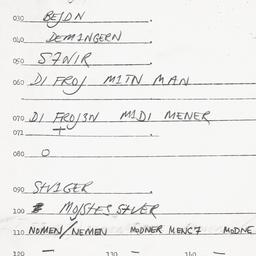 030 BEJDN .
040 DEMINGERN .
050 S7WIR .
060 DI FROJ M1TN MAN
070 DI FROJ3N M1DI MENER
071 + .
080 O
090 S4VIGER .
100 MOJSHES S4VER
110 NOMEN/NEMEN MODNER MENC7 MODNE
120 130 160